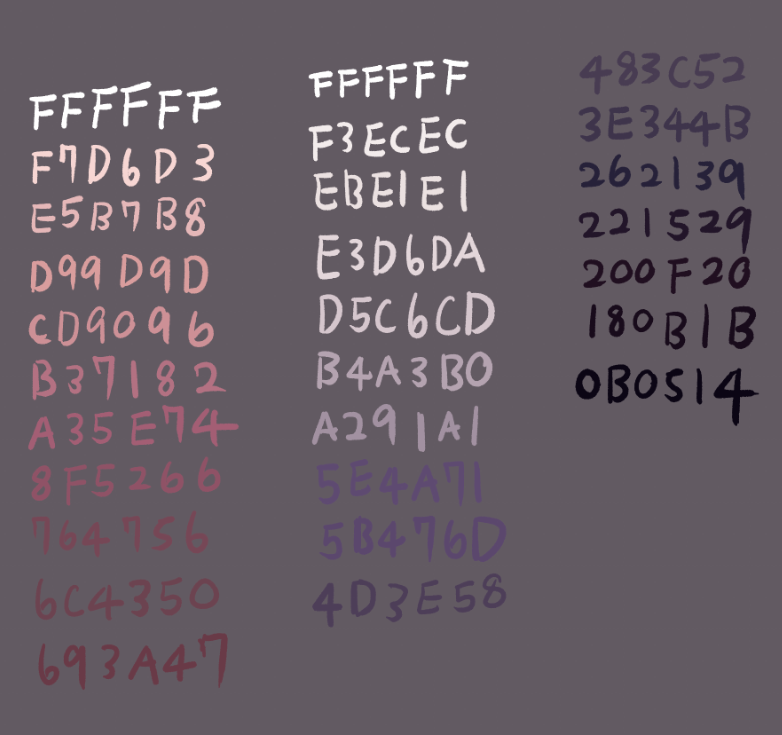 FFFFFF
F7D6D3
E5B7B8
D99D9D
CD9096
B37182
A35E74
8F5266
764756
6C4350
693A47
FFFFFF
F3ECEC
EBE1E1
E3D6DA
D5C6CD
B4A3B0
A291A1
5E4A71
5B476D
4D3E58
483C52
3E344B
262139
221529
200F20
180B1B
0B0514